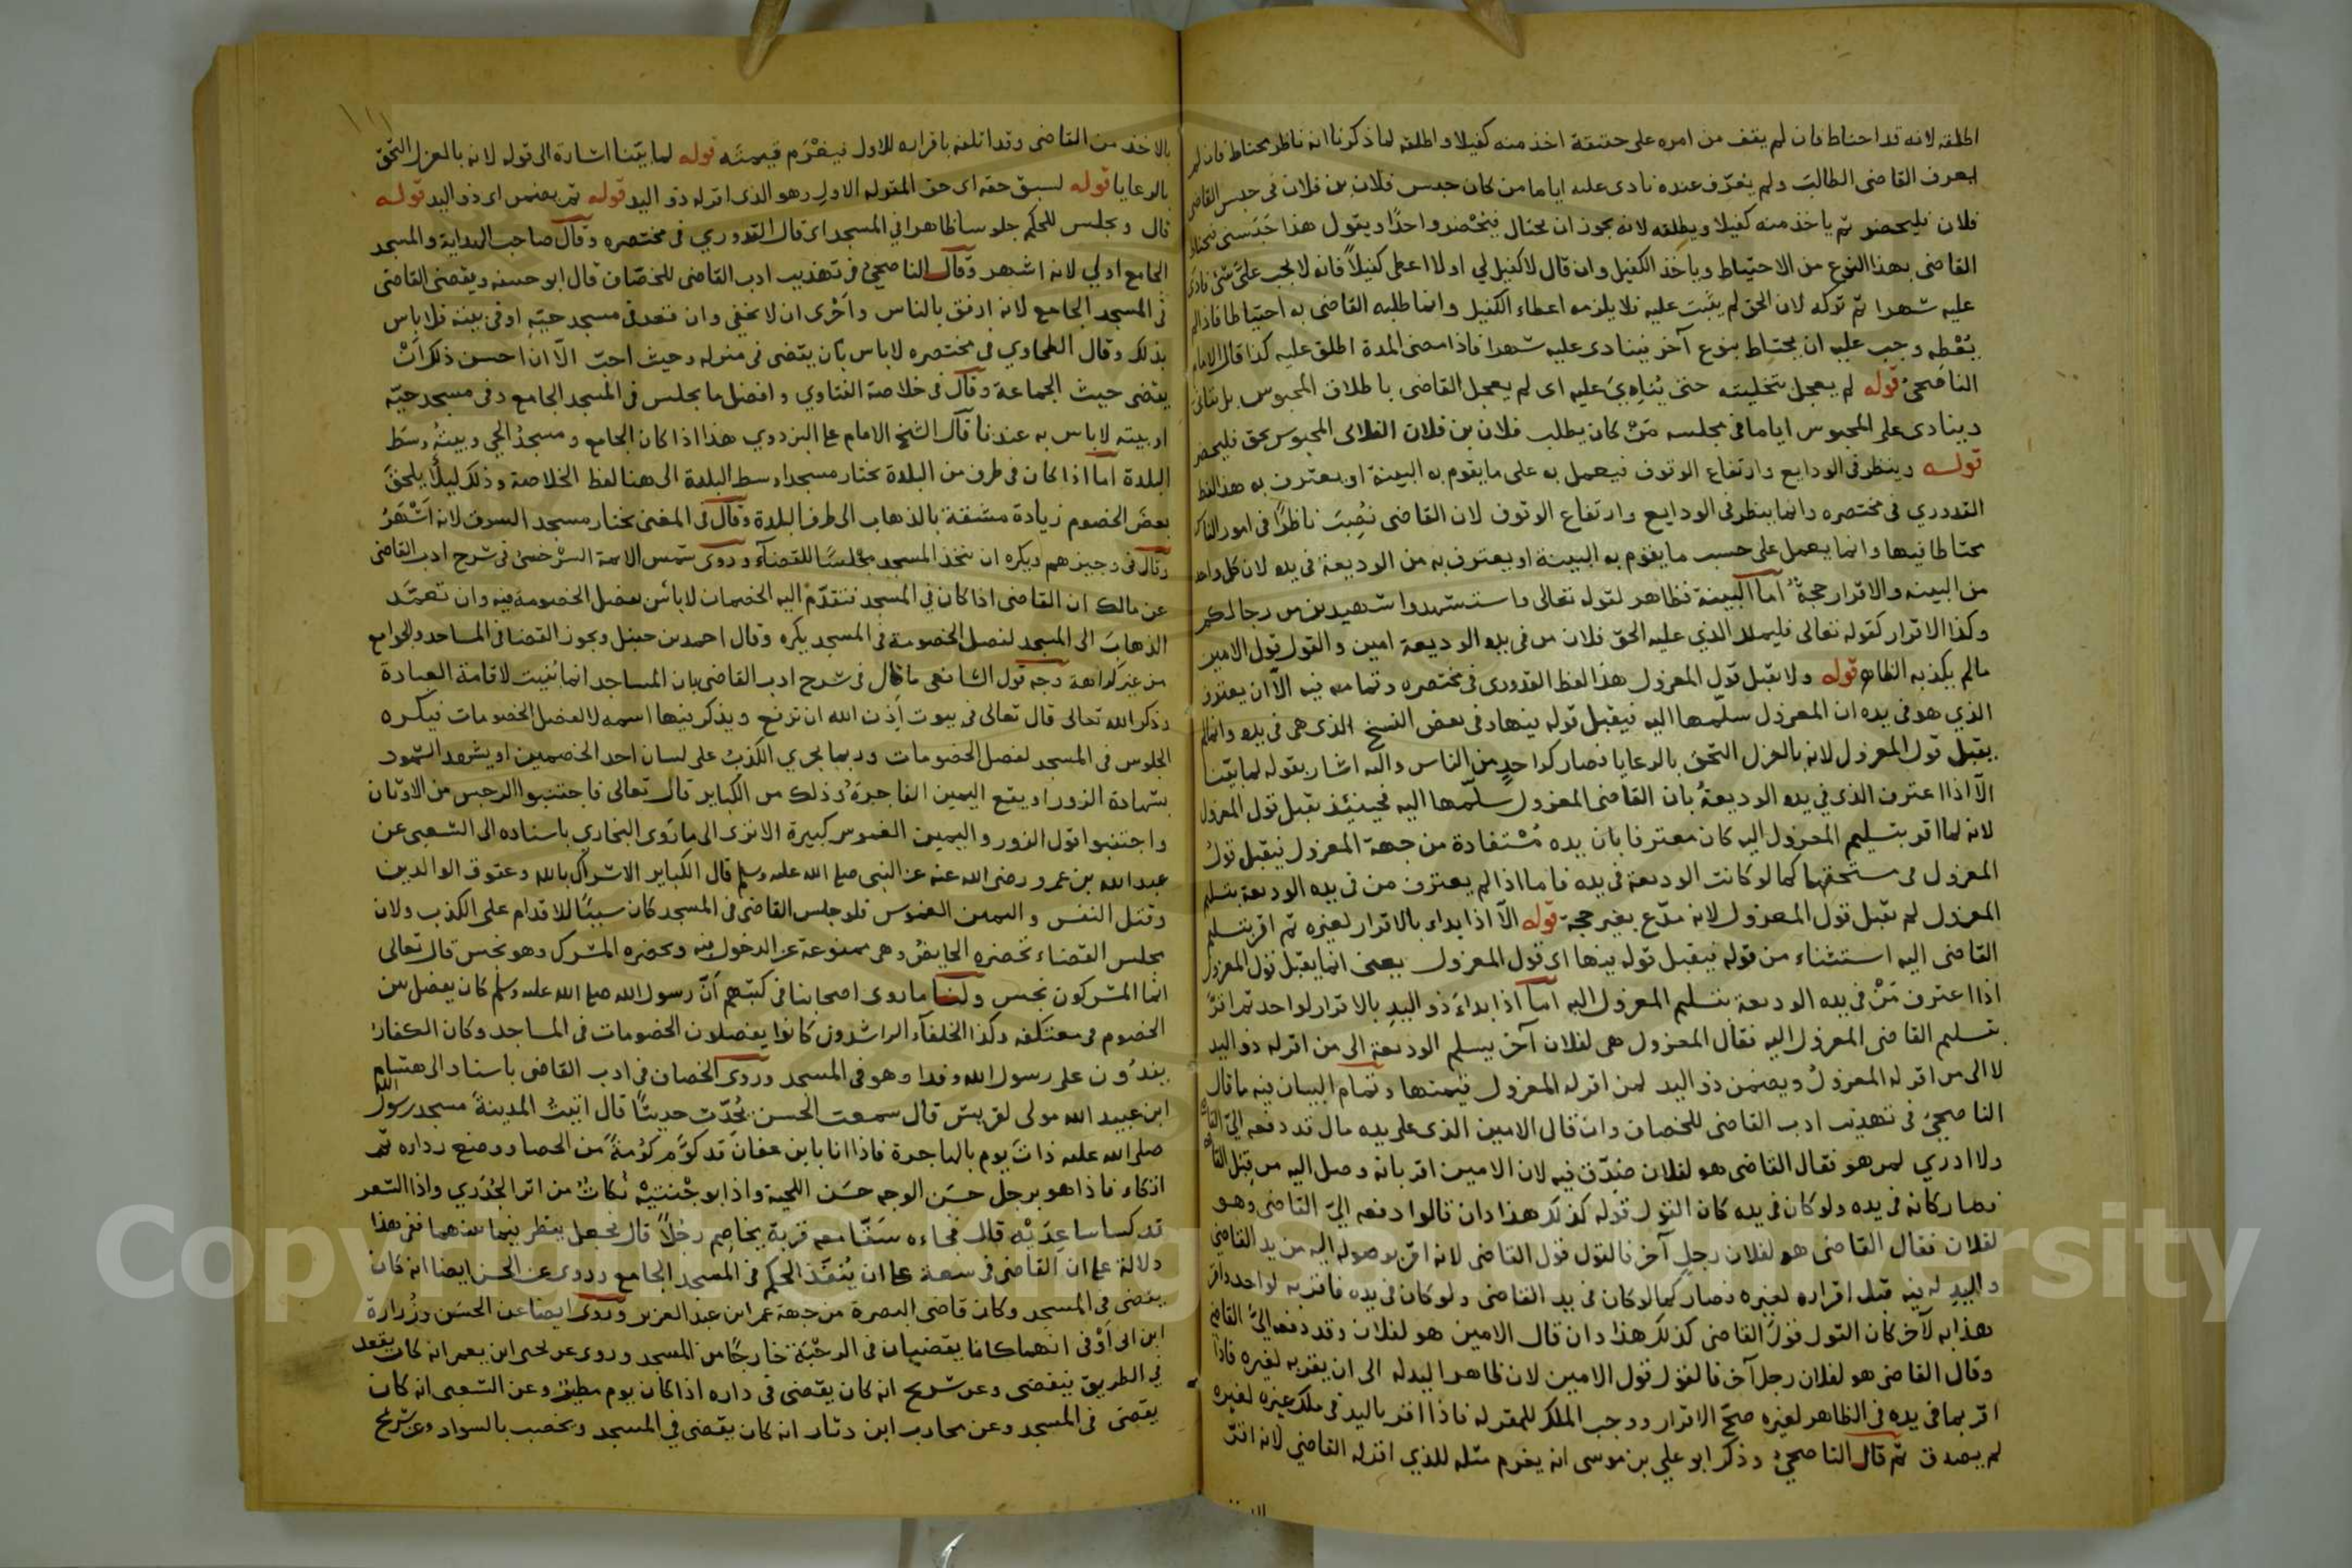 اطلقه لانه قد احتاط فان لم يقف من امره على حقيقة اخذ منه كفيلا واطلقه لما ذكرنا انه ناظر محتاط فان لم
يعرف القاضى الطالبَ ولم يعرّف عنده نادى عليه اياما من كان حبس فلان بن فلان فى حبس القاضى
فلان فليحضر ثم ياخذ منه كفيلا ويطلقه لانه يجوز ان يحتال فيحضر واحدًا ويقول هذا حَبَسنى فيحتاط
القاضى بهذا النوع من الاحتياط وياخذ الكفيل وان قال لا كفيل لي اولا اعطى كفيلاً فانه لا يجب علىّ شئ نادى
عليه شهرا ثم تركه لان الحق لم يثبت عليه فلا يلزمه اعطاء الكفيل وانما طلبه القاضى به احتياطا فاذا لم
يُعْطِه وجب عليه ان يحتاط بنوع آخر فينادى عليه شهرا فاذا مضى المدة اطلق عليه كذا قال الامام
الناصحىُّ قوله لم يعجل بتخليته حتى يُنادِيَ عليه اى لم يعجل القاضى باطلاق المحبوس بل يتأنى
وينادى على المحبوس اياما فى مجلسه مَنْ كان يطلب فلان بن فلان الفلانى المحبوس بحق فليحضر
قوله وينظر فى الودايع وارتفاع الوقوف فيعمل به على ما يقوم به البينة او يعترف به هذا لفظ
القدوري فى مختصره وانما ينظر فى الودايع وارتفاع الوقوف لان القاضى نُصِبَ ناظرًا فى امور الناس
محتاطا فيها وانما يعمل على حسب ما يقوم به البينة او يعترف به من الوديعة فى يده لان كل واحد
من البينه والاقرار حجةٌ اما البينة فظاهر لقوله تعالى واستشهدوا شهيدين من رجالكم
وكذا الاقرار كقوله تعالى فليملل الذي عليه الحق فلان من فى يده الوديعة امين والقول قول الامين
مالم يكذبه الظاهر قوله ولا يقبل قول المعزول هذا لفظ القدورى فى مختصره وتمامه فيه الّا ان يعترف
الذي هو فى يده ان المعزول سلّمها اليه فيقبل قوله فيها وفى بعض النسخ الذى هى فى يده وانما لم
يقبل قول المعزول لانه بالعزل التحق بالرعايا فصار كواحدٍ من الناس واليه اشار بقوله لما بيّنا
الّا اذا اعترف الذى فى يده الوديعةُ بان القاضى المعزول سلّمها اليه فحينئذ يقبل قول المعزول
لانه لما اقر بتسليم المعزول اليه كان معترفا بان يده مُسْتفادة من جهة المعزول فيقبل قولُ
المعزول فى مستحقها كما لو كانت الوديعة فى يده فاما اذا لم يعترف من فى يده الوديعة بتسليم
المعزول لم يقبل قول المعزول لانه مدّع بغير حجة قوله الّا اذا بداء بالاقرار لغيره ثم اقر بتسليم
القاضى اليه استثناء من قوله فيقبل قوله فيها اى قول المعزول يعنى انما يقبل قول المعزول
اذا اعترف مَنْ فى يده الوديعة بتسليم المعزول اليه اما اذا بداءَ ذو اليد بالاقرار لواحد ثم اقرّ
بتسليم القاضى المعزول اليه فقال المعزول هى لفلان آخر يسلم الوديعة الى من اقر له ذو اليد
لا الى من اقر له المعزولُ ويضمن ذو اليد لمن اقر له المعزول قيمتها وتمام البيان فيه ما قال
الناصحىّ فى تهذيب ادب القاضى للخصاف وان قال الامين الذى على يده مال قد دفعه الىّ القاضى
ولا ادري لمن هو فقال القاضى هو لفلان صُدّق فيه لان الامين اقر بانه وصل اليه من قِبَل القاضى
فصار كانه فى يده ولو كان فى يده كان القول قوله كذلك هذا وان قالوا دفعه الىّ القاضى وهو
لفلان فقال القاضى هو لفلان رجلٍ آخر فالقول قول القاضى لانه اقرّ بوصوله اليه من يد القاضى
واليدِ له فيه قبل اقراره لغيره فصار كما لو كان فى يد القاضى ولو كان فى يده فاقر به لواحد واقر
هذا به لآخر كان القول قولُ القاضى كذلك هذا وان قال الامين هو لفلان وقد دفعه الىّ القاضى
وقال القاضى هو لفلان رجل آخر فالقول قول الامين لان ظاهر اليد له الى ان يقر به لغيره فاذا
اقر بما فى يده فى الظاهر لغيره صحّ الاقرار ووجب الملك للمقر له فاذا اقر باليد فى ملك غيره لغيره
لم يصدق ثم قال الناصحىُّ وذكر ابو علي بن موسى انه يغرم مثله للذي اقر له القاضي لانه اقرّ
بالاخذ من القاضى وقد اتلفه باقراره للاول فيغْرَم قيمتَه قوله لما بيّنا اشارة الى قوله لانه بالعزل التحق
بالرعايا قوله لسبق حقه اى حق المقر له الاول وهو الذى اقر له ذو اليد قوله ثم يضمن اى ذو اليد قوله
قال ويجلس للحكم جلوسا ظاهرا فى المسجد اى قال القدوري فى مختصره وقال صاحب الهداية والمسجد
الجامع اولي لانه اشهر وقال الناصحىُّ فى تهذيب ادب القاضى للخصّاف قال ابو حنيفه ويقضى القاضى
فى المسجد الجامع لانه ارفق بالناس واَحْرى ان لا يخفى وان قعد فى مسجد حيّه او فى بيته فلا باس
بذلك وقال الطحاوي فى مختصره لا باس بأن يقضى فى منزله وحيث احبّ الّا انّ احسن ذلك اَنْ
يقضى حيث الجماعة وقال فى خلاصة الفتاوي وافضل ما يجلس فى المسجد الجامع وفى مسجد حيّه
او بيته لا باس به عندنا قال الشيخ الامام على البزدوي هذا اذا كان الجامع ومسجدُ الحي وبيتهُ وسَط
البلدة اما اذا كان فى طرف من البلدة يختار مسجدا وسط البلدة الى هنا لفظ الخلاصة وذلك ليلّا يلحقَ
بعضَ الخصوم زيادة مشقة بالذهاب الى طرف البلدة وقال فى المغنى يختار مسجد السوق لانه اَشْهَرُ
وقال فى وجيزهم ويكره ان يتخذ المسجد مجْلسًا للقضآء وروى شمس الائمة السرخسىّ فى شرح ادب القاضى
عن مالك ان القاضى اذا كان فى المسجد فتقدّم اليه الخصمان لا بأس بفصل الخصومة فيه وان تعمّد
الذهابَ الى المسجد لفصل الخصومة فى المسجد يكره وقال احمد بن حنبل ويجوز القضا فى المساجد والجوامع
من غير كراهة وجه قول الشافعى ما قال فى شرح ادب القاضى بان المساجد انما بُنيت لاقامة العبادة
وذكر الله تعالى قال تعالى فى بيوت اَذِن الله ان ترفع ويذكر فيها اسمه لا لفصل الخصومات فيكره
الجلوس فى المسجد لفصل الخصومات وربما يجري الكذبُ على لسان احد الخصمين او يشهد الشهود
بشهادة الزور او يقع اليمين الفاجرةُ وذلك من الكباير قال تعالى فاجتنبوا الرجس من الاوثان
واجتنبوا قول الزور واليمين الغموس كبيرة الا ترى الى ما روى البخاري باسناده الى الشعبى عن
عبد الله بن عمرو رضى الله عنه عن النبى صلى الله عليه وسلم قال الكباير الاشراك بالله وعقوق الوالدين
وقتل النفس واليمين الغموس فلو جلس القاضى فى المسجد كان سببًا للاقدام على الكذب ولان
مجلس القضاء تحضره الحايض وهى ممنوعة عن الدخول فيه ويحضره المشرك وهو نجس قال تعالى
انما المشركون نجس ولنا ما روى اصحابنا فى كتبهم اَنّ رسول الله صلى الله عليه وسلم كان يفصل بين
الخصوم فى معتكفه وكذا الخلفآء الراشدون كانوا يفصلون الخصومات فى المساجد وكان الكفار
يَفِدُون على رسول الله وفدا وهو فى المسجد وروى الخصاف فى ادب القاضى باسناد الى هشام
ابن عبيد الله مولى لقريش قال سمعت الحسن يُحدّث حديثًا قال اتيتُ المدينةَ مسجد رسول الله
صلى الله عليه ذاتَ يوم بالهاجرة فاذا انا بابن عفانَ قد كوَّم كَوْمةً من الحصا ووضع رداره ثم
اتكاء فاذا هو برجل حسَن الوجه حسَن اللحية واذا بوجْنتيْه نُكاتٌ من اثر الجُدَري واذا الشعر
قد كسا ساعِدَيْه قال فجاءه سَقّا معه قربة يخاصِم رجُلاً قال فجعل ينظر فيما بينهما ففى هذا
دلالة على ان القاضى فى سعة على ان يُنْفِذَ الحكم فى المسجد الجامع وروى عن الحسن ايضا انه كان
يقضى فى المسجد وكان قاضى البصرة من جهة عمر ابن عبد العزيز وروى ايضا عن الحسن وزُرارة
ابن ابى اَوْفى انهما كانا يقضيان فى الرحْبَة خارجًا من المسجد وروى عن يحيى ابن يعمر انه كان يقعد
فى الطريق فيقضى وعن شريح انه كان يقضى فى داره اذا كان يوم مطير وعن الشعبى انه كان
يقضى فى المسجد وعن محارب ابن دثار انه كان يقضى فى المسجد ويخضب بالسواد وعن شريح
Copyright © King Saud University